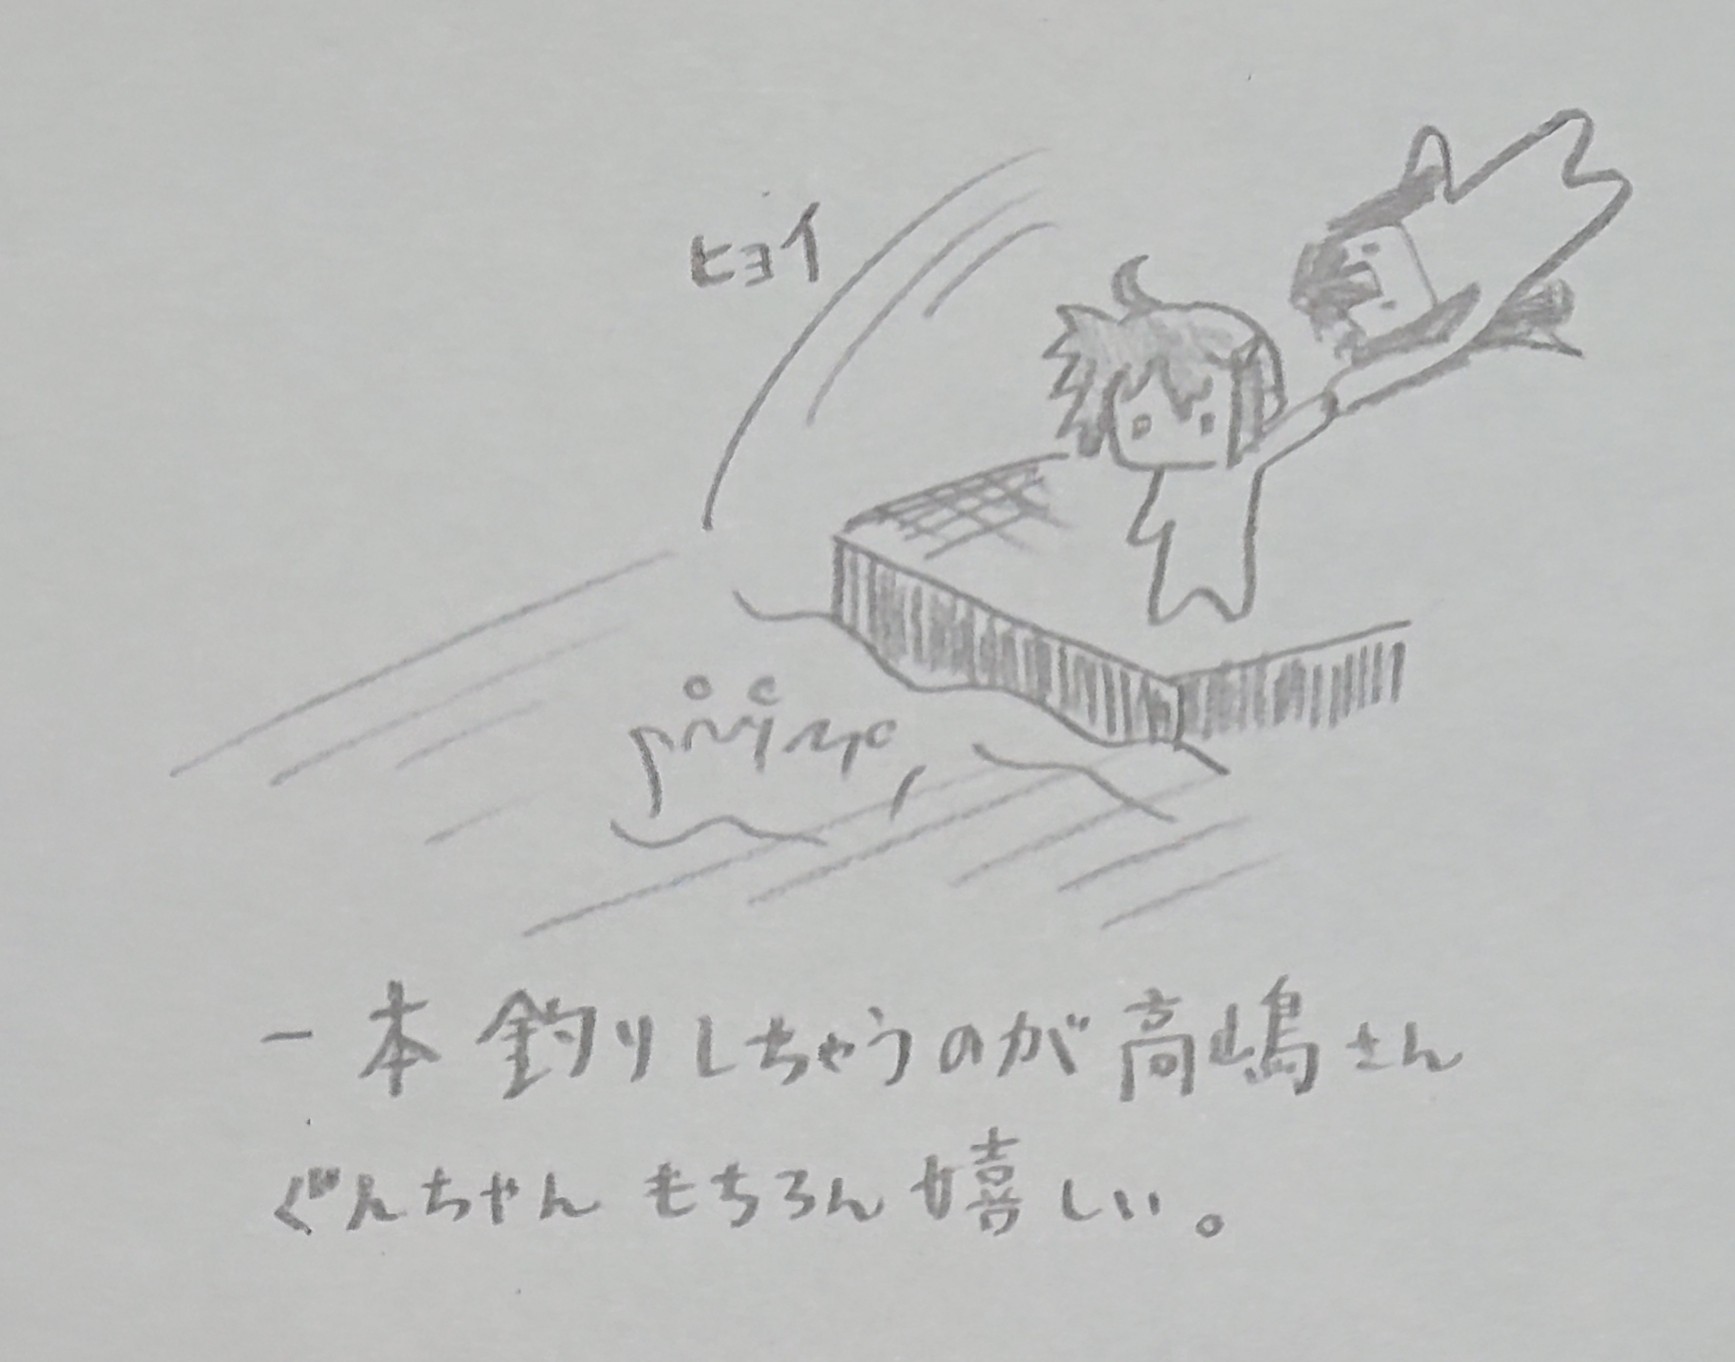 ヒョイ
一本釣りしちゃうのが高嶋さん
ぐんちゃんもちろん嬉しい。